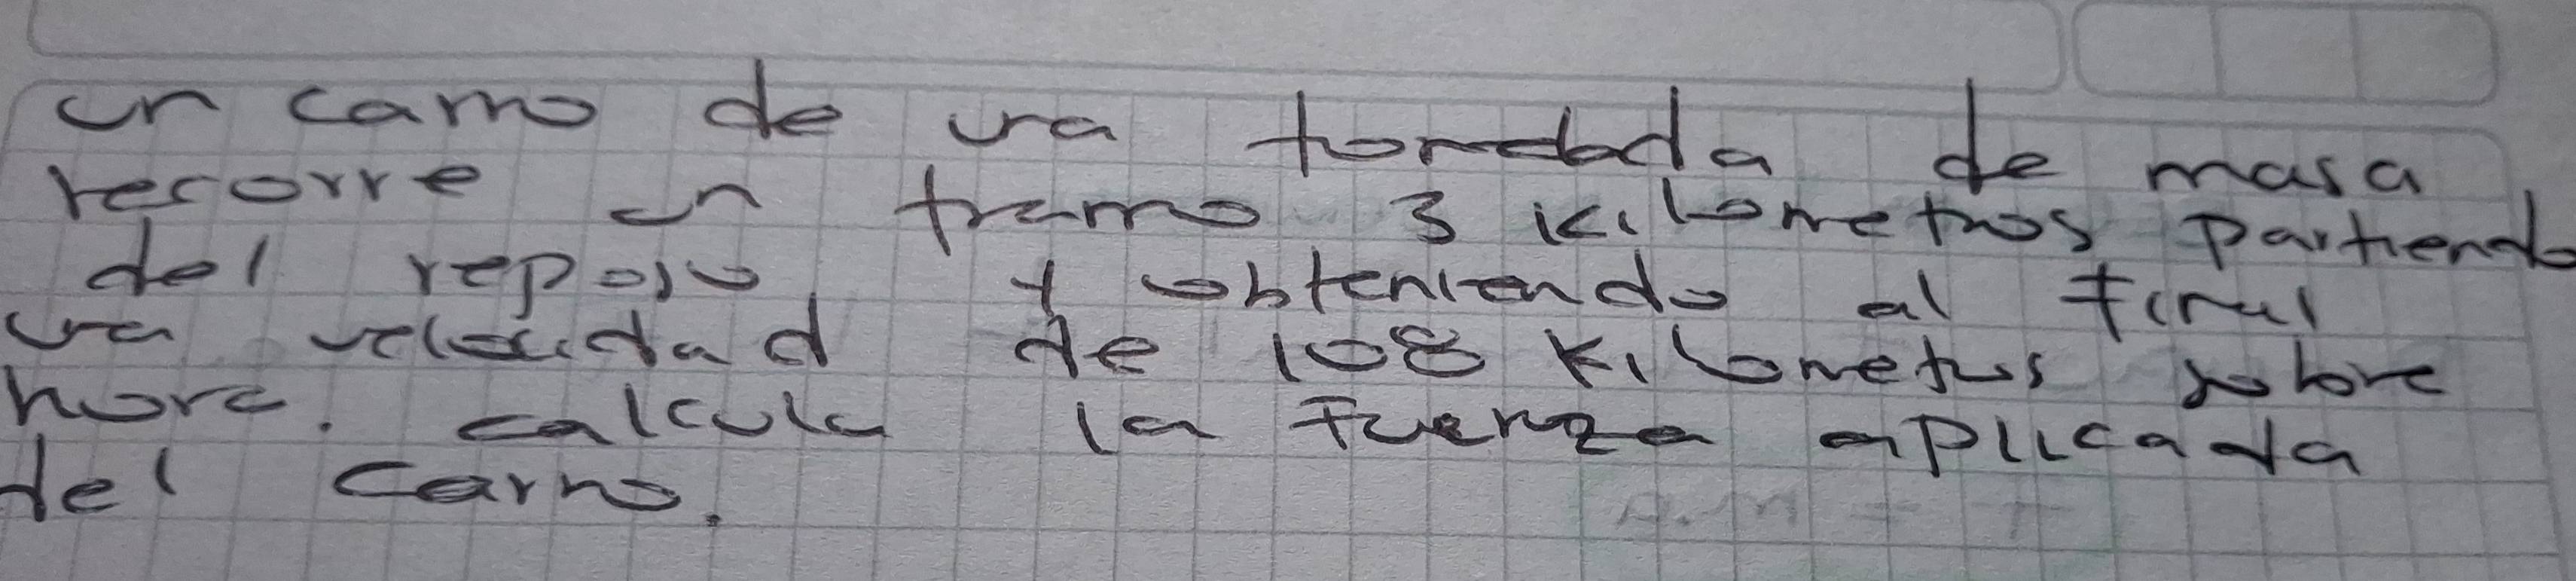 un carro de una tonelada de masa
recorre un tramo 3 kilometros partiendo
del reposo y obteniendo al final
una velocidad de 108 kilometros sobre
hora. calcula la fuerza aplicada
del carro.